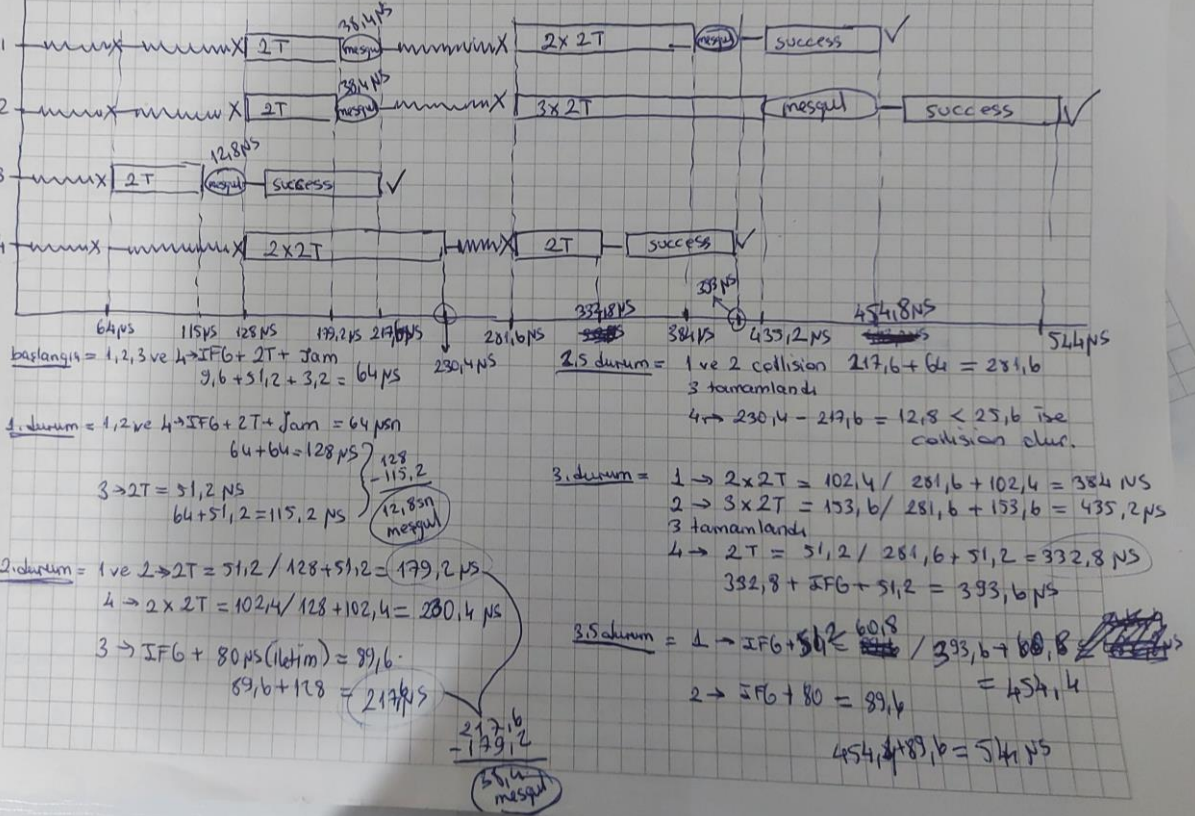 38,4 µs
1 2T meşgul 2x2T meşgul success ✓
38,4 µs
2 2T meşgul 3x2T meşgul success ✓
12,8 µs
3 2T meşgul success ✓
4 2x2T 2T success ✓
393 µs
332,8 µs 454,8 µs
64 µs 115 µs 128 µs 179,2 µs 217,6 µs 281,6 µs 384 µs 435,2 µs 544 µs
230,4 µs
başlangıç = 1,2,3 ve 4 → IFG + 2T + Jam
9,6 + 51,2 + 3,2 = 64 µs
1.durum = 1,2 ve 4 → IFG + 2T + Jam = 64 µsn
64 + 64 = 128 µs
128
- 115,2
12,8 sn
meşgul
3 → 2T = 51,2 µs
64 + 51,2 = 115,2 µs
2.durum = 1 ve 2 → 2T = 51,2 / 128 + 51,2 = 179,2 µs
4 → 2x2T = 102,4 / 128 + 102,4 = 230,4 µs
3 → IFG + 80 µs (iletim) = 89,6
89,6 + 128 = 217,6 µs
217,6
- 179,2
38,4
meşgul
2,5 durum = 1 ve 2 collision 217,6 + 64 = 281,6
3 tamamlandı
4 → 230,4 - 217,6 = 12,8 < 25,6 ise
collision olur.
3.durum = 1 → 2x2T = 102,4 / 281,6 + 102,4 = 384 µs
2 → 3x2T = 153,6 / 281,6 + 153,6 = 435,2 µs
3 tamamlandı
4 → 2T = 51,2 / 281,6 + 51,2 = 332,8 µs
332,8 + IFG + 51,2 = 393,6 µs
3.5 durum = 1 → IFG + 51,2 = 60,8 / 393,6 + 60,8
= 454,4
2 → IFG + 80 = 89,6
454,4 + 89,6 = 544 µs